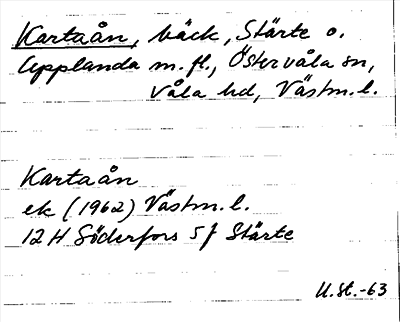 Kartaån, bäck, Stärte o.
Upplanda m.fl., Östervåla sn,
Våla hd, Västm.l.
Kartaån
ek (1962) Västm.l.
12H Söderfors 5f Stärte
U.St.-63